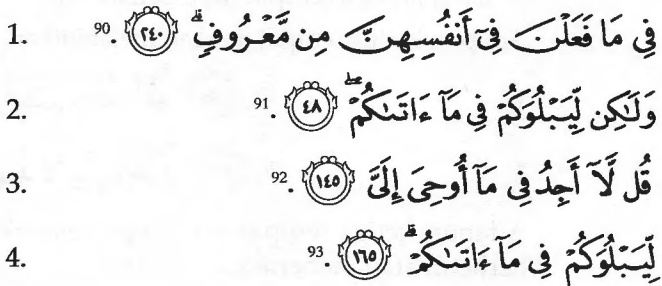 1. فِى مَا فَعَلْنَ فِىٓ أَنفُسِهِنَّ مِن مَّعْرُوفٍ ۗ ﴿٢٤٠﴾ .90
2. وَلَـٰكِن لِّيَبْلُوَكُمْ فِى مَآ ءَاتَىٰكُمْ ۖ ﴿٤٨﴾ .91
3. قُل لَّآ أَجِدُ فِى مَآ أُوحِىَ إِلَىَّ ﴿١٤٥﴾ .92
4. لِّيَبْلُوَكُمْ فِى مَآ ءَاتَىٰكُمْ ۗ ﴿١٦٥﴾ .93